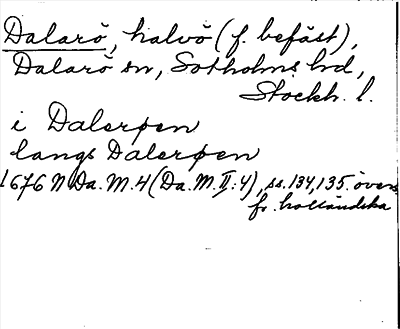 Dalarö, halvö (f. befäst),
Dalarö sn, Sotholms hd,
Stockh. l.
i Dalerøen
langs Dalerøen
1676 N Da. M. 4 (Da. M. II: 4), ss. 134, 135. övers.
fr. holländska